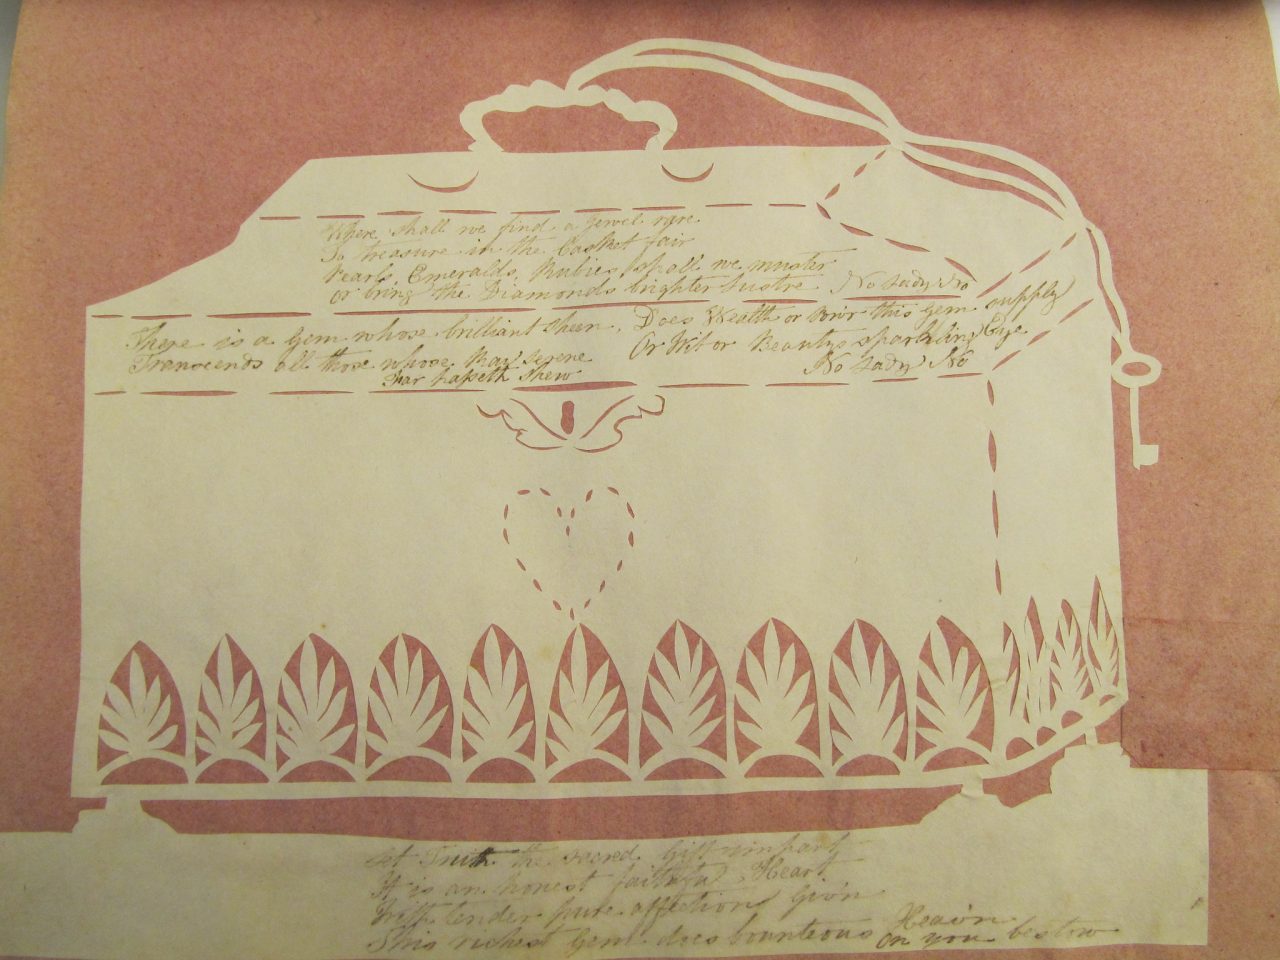 Where shall we find a Jewel rare
To treasure in the Casket fair
Pearls, Emeralds, Rubies shall we muster
or bring the Diamonds brighter lustre No Lady No
There is a Gem whose brilliant sheen
Transcends all those whose May serene
hapeth shew
Does Wealth or Pow'r this Gem supply
Or Wit or Beautys sparkling Eye
No Lady No
Let Truth the sacred Gift impart
It is an honest faithful Heart
With tender pure affections Giv'n
This richest Gem does bounteous Heav'n
On you bestow